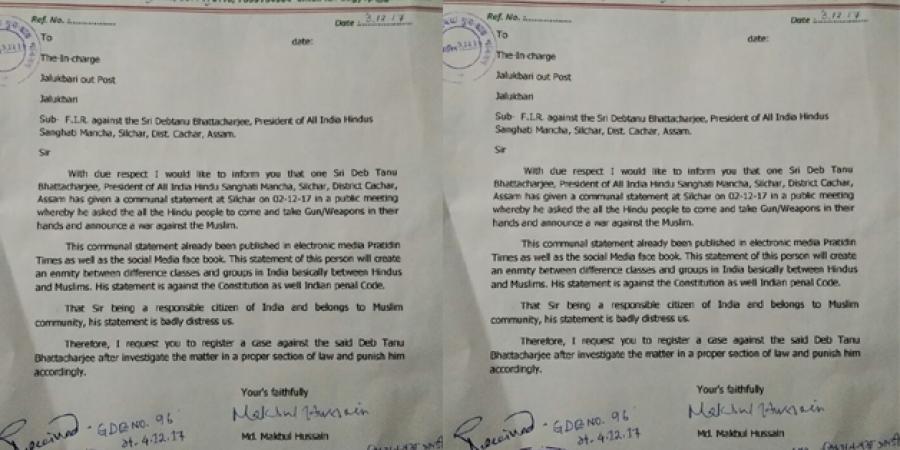 Ref. No.
Date 3.12.17
To
date:
The-In-charge
Jalukbari out Post
Jalukbari
Sub- F.I.R. against the Sri Debtanu Bhattacharjee, President of All India Hindus
Sanghati Mancha, Silchar, Dist. Cachar, Assam.
Sir
With due respect I would like to inform you that one Sri Deb Tanu
Bhattacharjee, President of All India Hindu Sanghati Mancha, Silchar, District Cachar,
Assam has given a communal statement at Silchar on 02-12-17 in a public meeting
whereby he asked the all the Hindu people to come and take Gun/Weapons in their
hands and announce a war against the Muslim.
This communal statement already been published in electronic media Pratidin
Times as well as the social Media face book. This statement of this person will create
an enmity between difference classes and groups in India besically between Hindus
and Muslims. His statement is against the Constitution as well Indian penal Code.
That Sir being a responsible citizen of India and belongs to Muslim
community, his statement is badly distress us.
Therefore, I request you to register a case against the said Deb Tanu
Bhattacharjee after investigate the matter in a proper section of law and punish him
accordingly.
Your's faithfully
Makbul Hussain
Md. Makbul Hussain
Received - GDE NO. 96
dt. 4.12.17
Ref. No.
Date 3.12.17
To
date:
The-In-charge
Jalukbari out Post
Jalukbari
Sub- F.I.R. against the Sri Debtanu Bhattacharjee, President of All India Hindus
Sanghati Mancha, Silchar, Dist. Cachar, Assam.
Sir
With due respect I would like to inform you that one Sri Deb Tanu
Bhattacharjee, President of All India Hindu Sanghati Mancha, Silchar, District Cachar,
Assam has given a communal statement at Silchar on 02-12-17 in a public meeting
whereby he asked the all the Hindu people to come and take Gun/Weapons in their
hands and announce a war against the Muslim.
This communal statement already been published in electronic media Pratidin
Times as well as the social Media face book. This statement of this person will create
an enmity between difference classes and groups in India besically between Hindus
and Muslims. His statement is against the Constitution as well Indian penal Code.
That Sir being a responsible citizen of India and belongs to Muslim
community, his statement is badly distress us.
Therefore, I request you to register a case against the said Deb Tanu
Bhattacharjee after investigate the matter in a proper section of law and punish him
accordingly.
Your's faithfully
Makbul Hussain
Md. Makbul Hussain
Received - GDE NO. 96
dt. 4.12.17